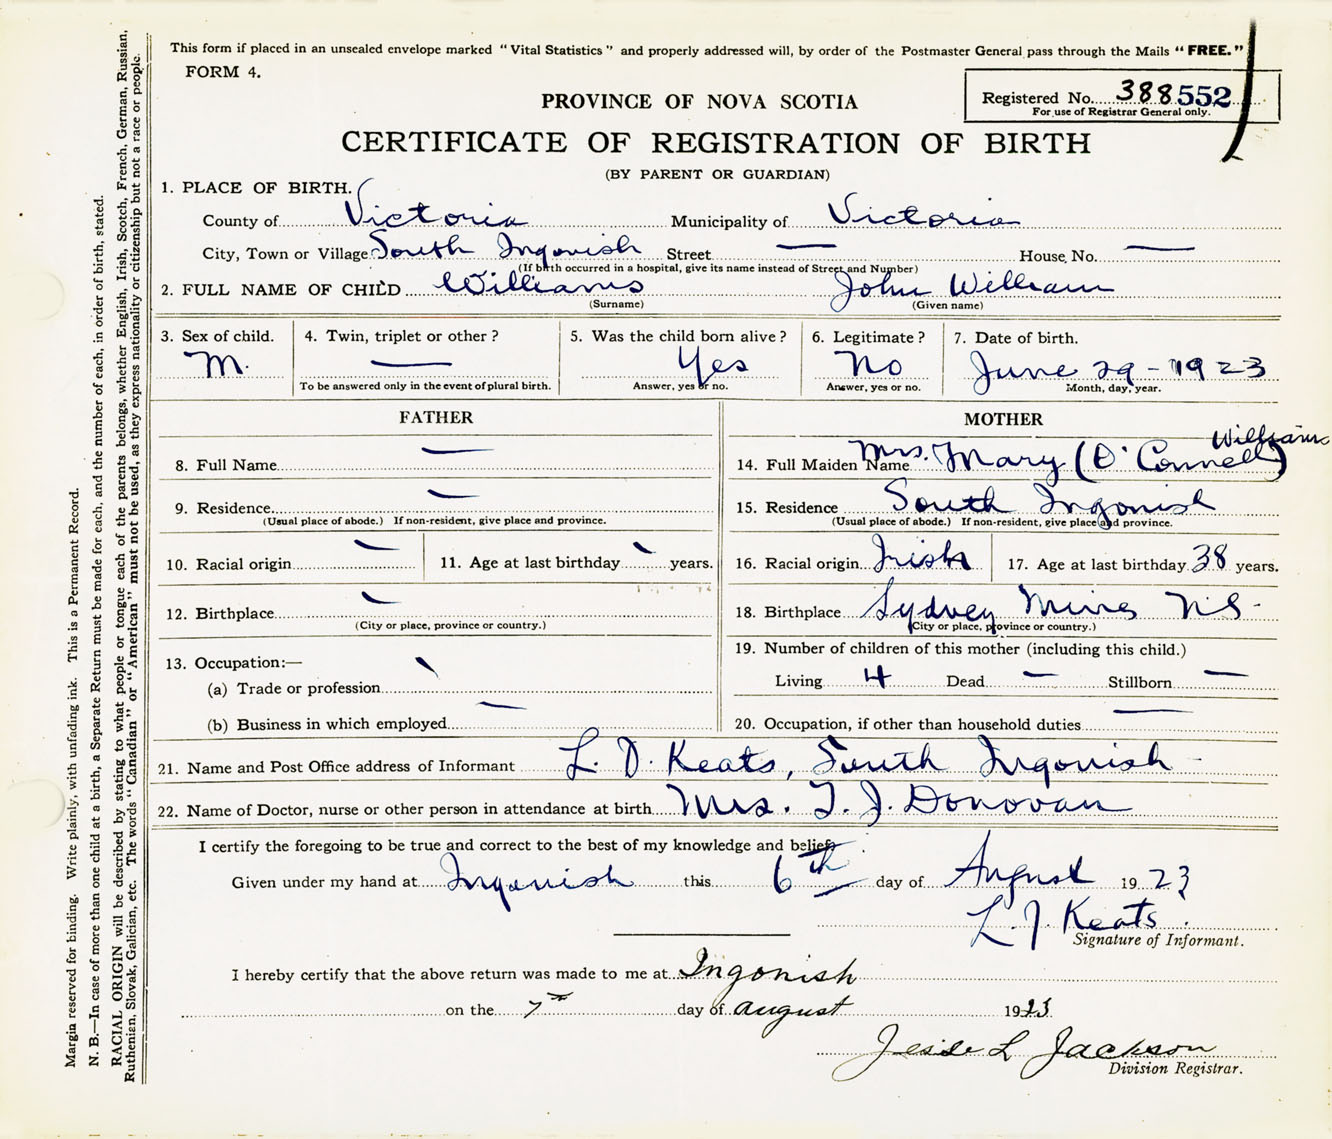 This form if placed in an unsealed envelope marked "Vital Statistics" and properly addressed will, by order of the Postmaster General pass through the Mails "FREE."
FORM 4.
Registered No. 388552
For use of Registrar General only.
PROVINCE OF NOVA SCOTIA
CERTIFICATE OF REGISTRATION OF BIRTH
(BY PARENT OR GUARDIAN)
1. PLACE OF BIRTH.
County of Victoria Municipality of Victoria
City, Town or Village South Ingonish Street — House No. —
(If birth occurred in a hospital, give its name instead of Street and Number)
2. FULL NAME OF CHILD Williams John William
(Surname) (Given name)
3. Sex of child. 4. Twin, triplet or other? 5. Was the child born alive? 6. Legitimate? 7. Date of birth.
M. — Yes No June 29 - 1923
To be answered only in the event of plural birth. Answer, yes or no. Answer, yes or no. Month, day, year.
FATHER
8. Full Name —
9. Residence —
(Usual place of abode.) If non-resident, give place and province.
10. Racial origin — 11. Age at last birthday — years.
12. Birthplace —
(City or place, province or country.)
13. Occupation:—
(a) Trade or profession
(b) Business in which employed —
MOTHER
Williams
14. Full Maiden Name Mrs. Mary (O'Connell)
15. Residence South Ingonish
(Usual place of abode.) If non-resident, give place and province.
16. Racial origin Irish 17. Age at last birthday 38 years.
18. Birthplace Sydney Mines NS-
(City or place, province or country.)
19. Number of children of this mother (including this child.)
Living 4 Dead — Stillborn —
20. Occupation, if other than household duties —
21. Name and Post Office address of Informant L. D. Keats, South Ingonish
22. Name of Doctor, nurse or other person in attendance at birth Mrs. T. J. Donovan
I certify the foregoing to be true and correct to the best of my knowledge and belief.
Given under my hand at Ingonish this 6th day of August 1923
L. J. Keats.
Signature of Informant.
I hereby certify that the above return was made to me at Ingonish
on the 7th day of august 1923
Jesse L Jackson
Division Registrar.
Margin reserved for binding. Write plainly, with unfading ink. This is a Permanent Record.
N. B.—In case of more than one child at a birth, a Separate Return must be made for each, and the number of each, in order of birth, stated.
RACIAL ORIGIN will be described by stating to what people or tongue each of the parents belongs, whether English, Irish, Scotch, French, German, Russian,
Ruthenian, Slovak, Galician, etc. The words "Canadian" or "American" must not be used, as they express nationality or citizenship but not a race or people.